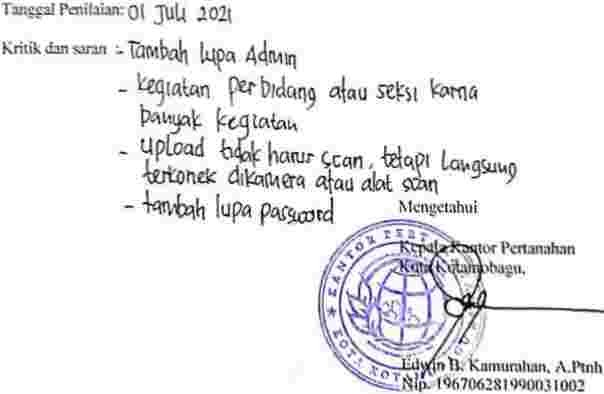 Tanggal Penilaian: 01 Juli 2021
Kritik dan saran :- Tambah lupa Admin
- kegiatan perbidang atau seksi karna
banyak kegiatan
- upload tidak harus scan, tetapi langsung
terkonek dikamera atau alat scan
- tambah lupa password
Mengetahui
Kepala Kantor Pertanahan
Kota Kotamobagu,
KANTOR PERT
KOTA KOTAMOBAGU
Edwin B. Kamurahan, A.Ptnh
Nip. 196706281990031002